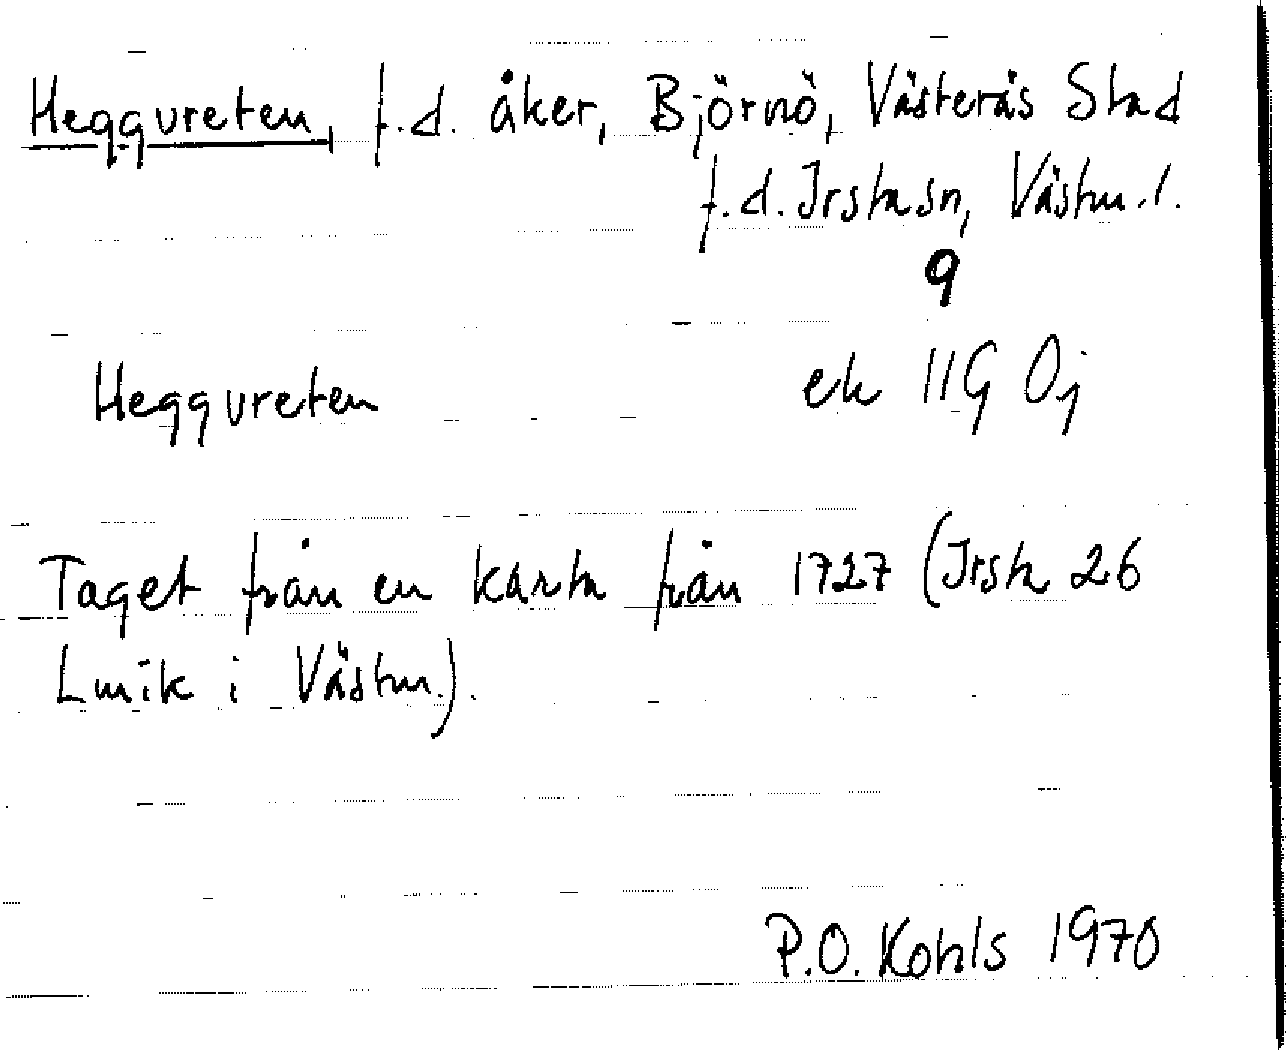 Heggvreten, f.d. åker, Björnö, Västerås Stad
f.d. Irsta sn, Västm. l.
9
Heggvreten ek 11G Oj
Taget från en karta från 1727 (Irsta 26
Lmik i Västm.).
P.O. Kohls 1970